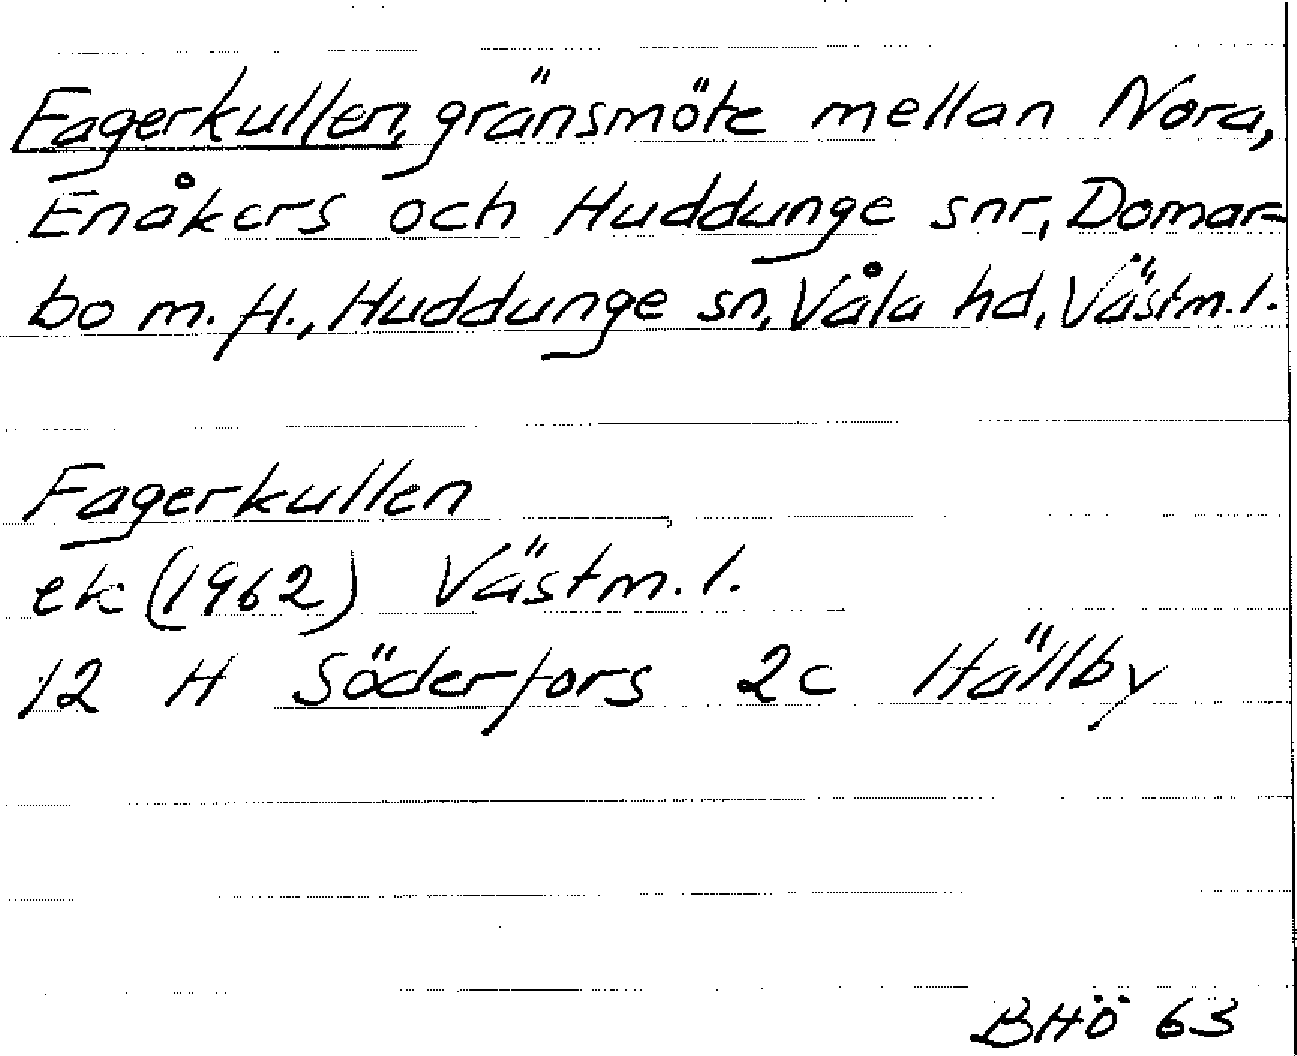 Fagerkullen, gränsmöte mellan Nora,
Enåkers och Huddunge snr, Domar=
bo m. fl., Huddunge sn, Våla hd, Västm. l.
Fagerkullen
ek (1962) Västm. l.
12 H Söderfors 2c Hällby
BHÖ 63